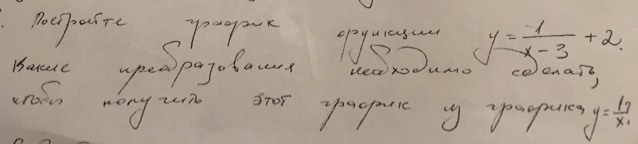 . Постройте график функции y = 1/(x-3) + 2.
Какие преобразования необходимо сделать,
чтобы получить этот график из графика y = 1/x.